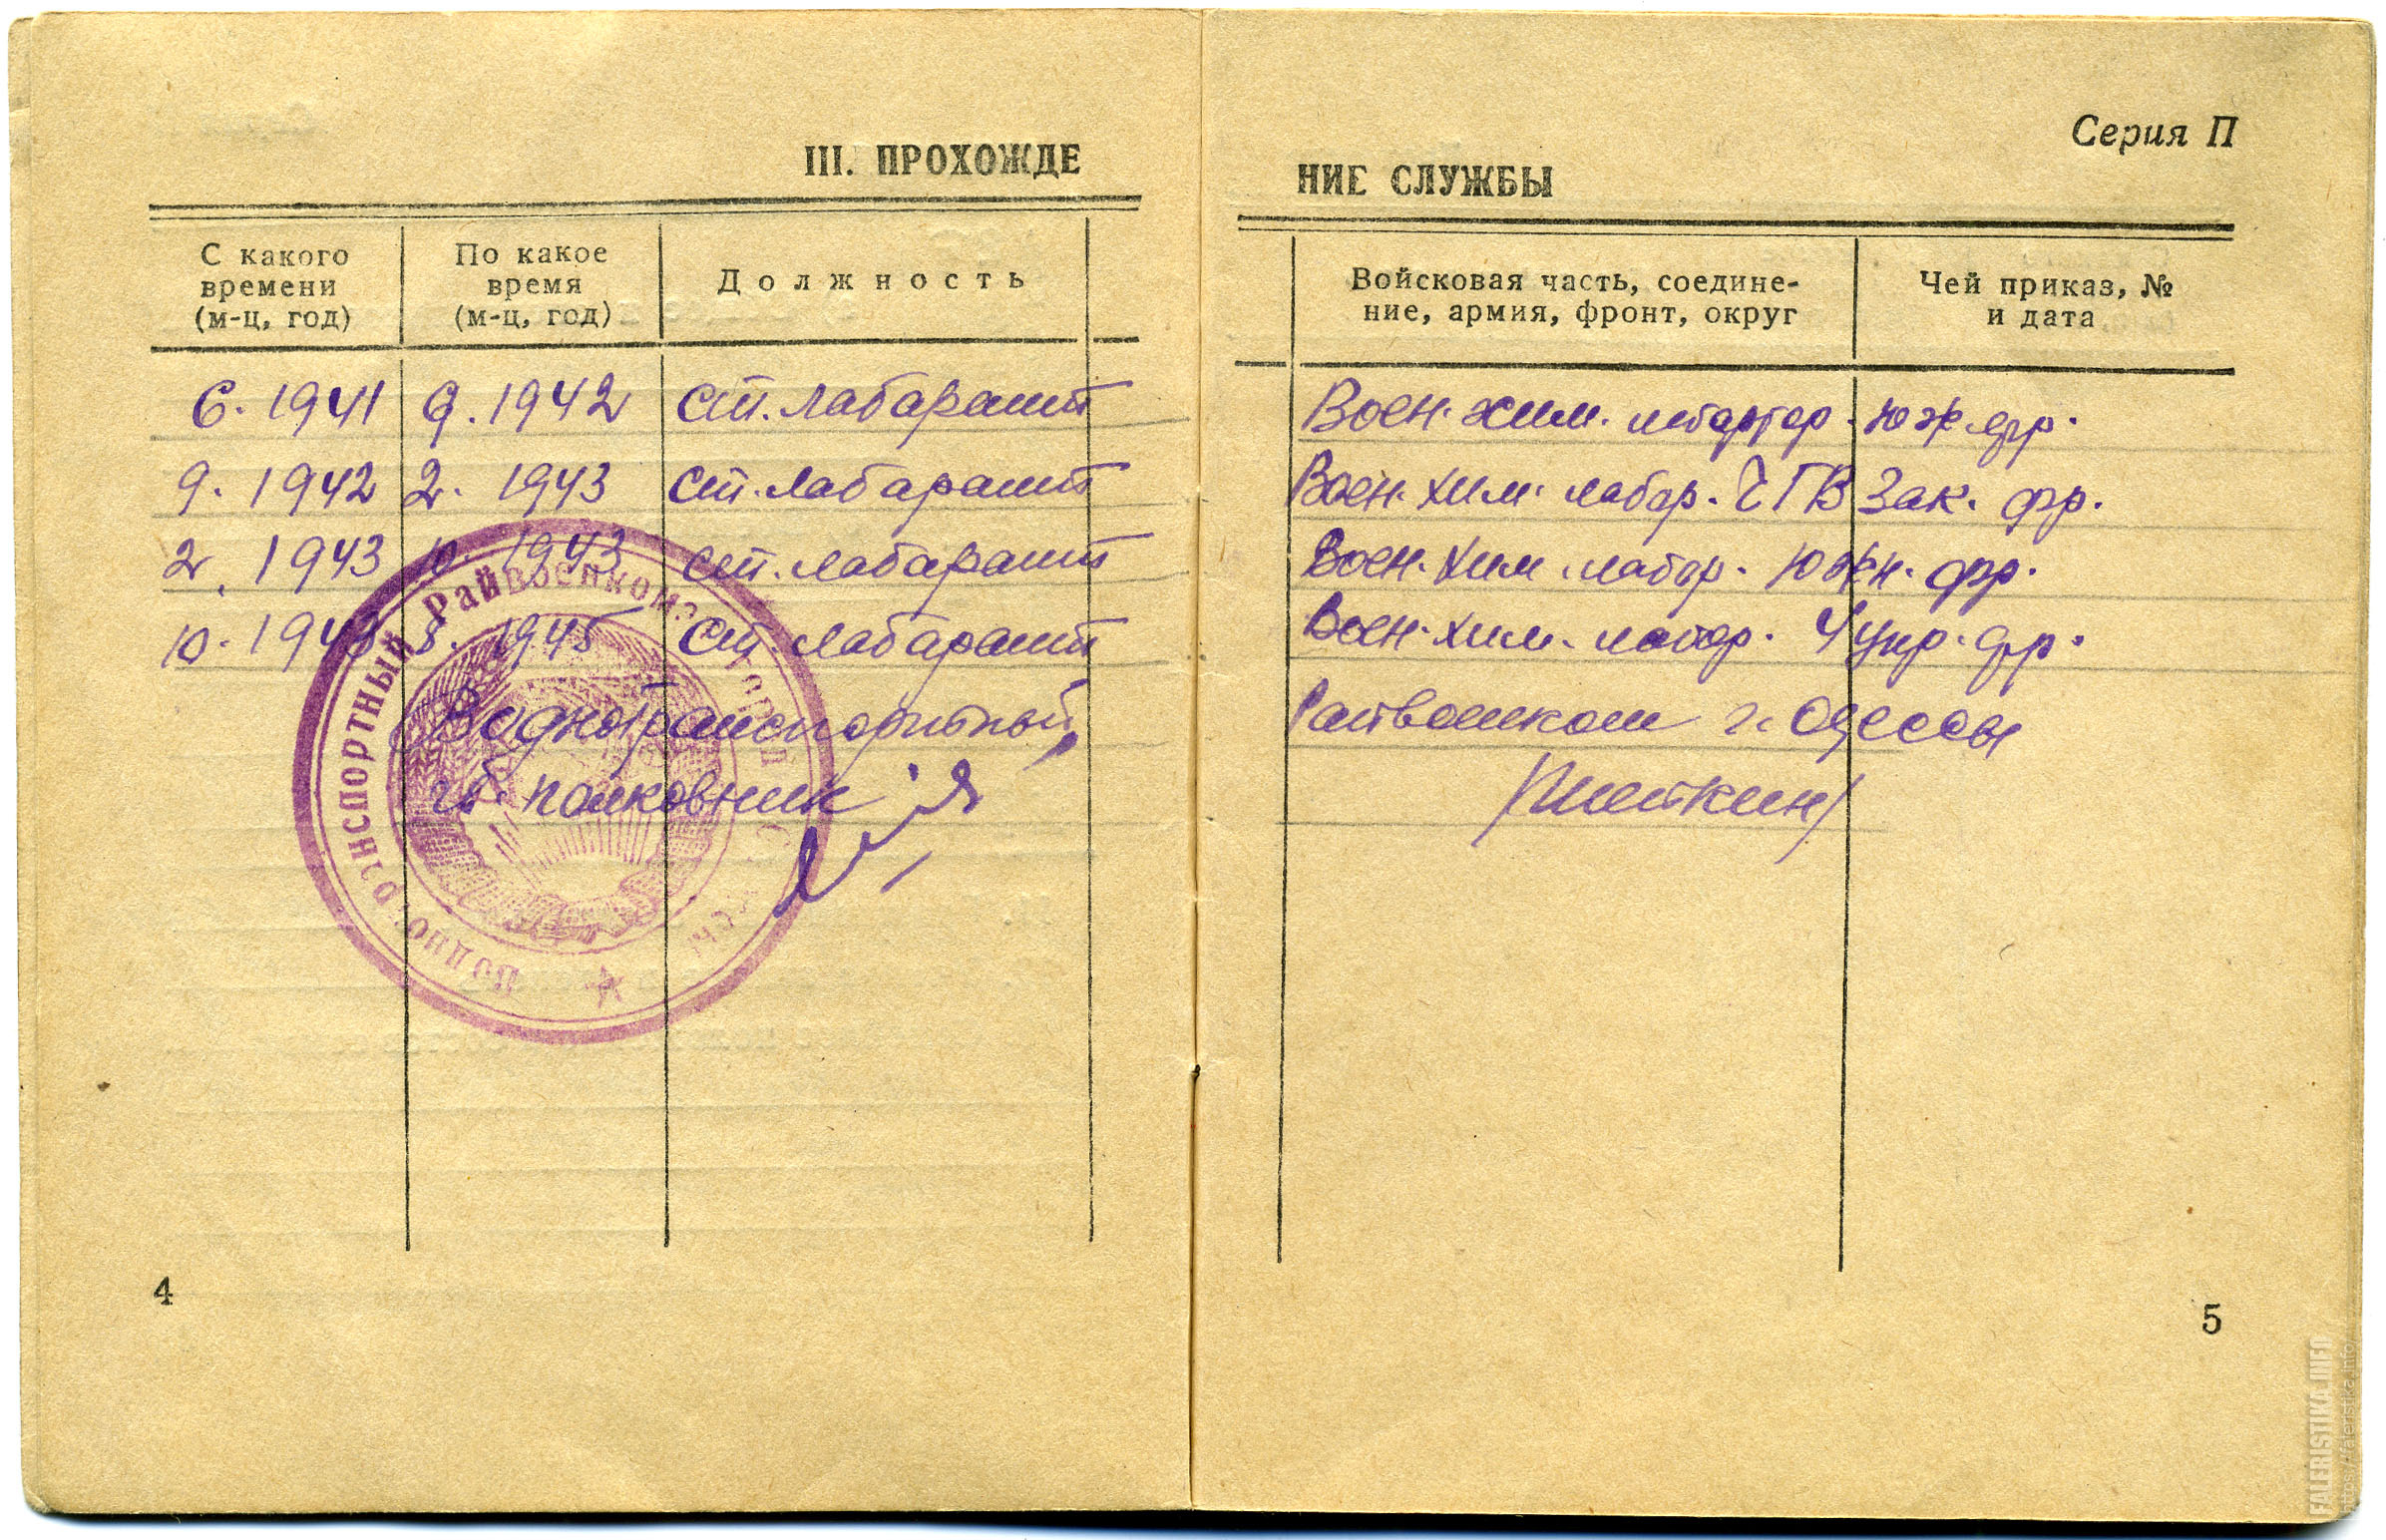 III. ПРОХОЖДЕ
С какого времени (м-ц, год)
По какое время (м-ц, год)
Должность
6. 1941 9. 1942 ст. лабарант
9. 1942 2. 1943 ст. лабарант
2. 1943 10. 1943 ст. лабарант
10. 1943 8. 1945 ст. лабарант
Воднотранспортный
полковник
Воднотранспортный Райвоенкомат города Одессы
4
Серия П
НИЕ СЛУЖБЫ
Войсковая часть, соедине-
ние, армия, фронт, округ
Чей приказ, №
и дата
Воен. хим. Юж фр.
Воен. хим. лабор. ЧГВ Зак. фр.
Воен. хим. лабор. Южн. фр.
Воен. хим. лабор. 4 укр. фр.
Райвоенком г. Одессы
5
FALERISTIKA.INFO
https://faleristika.info